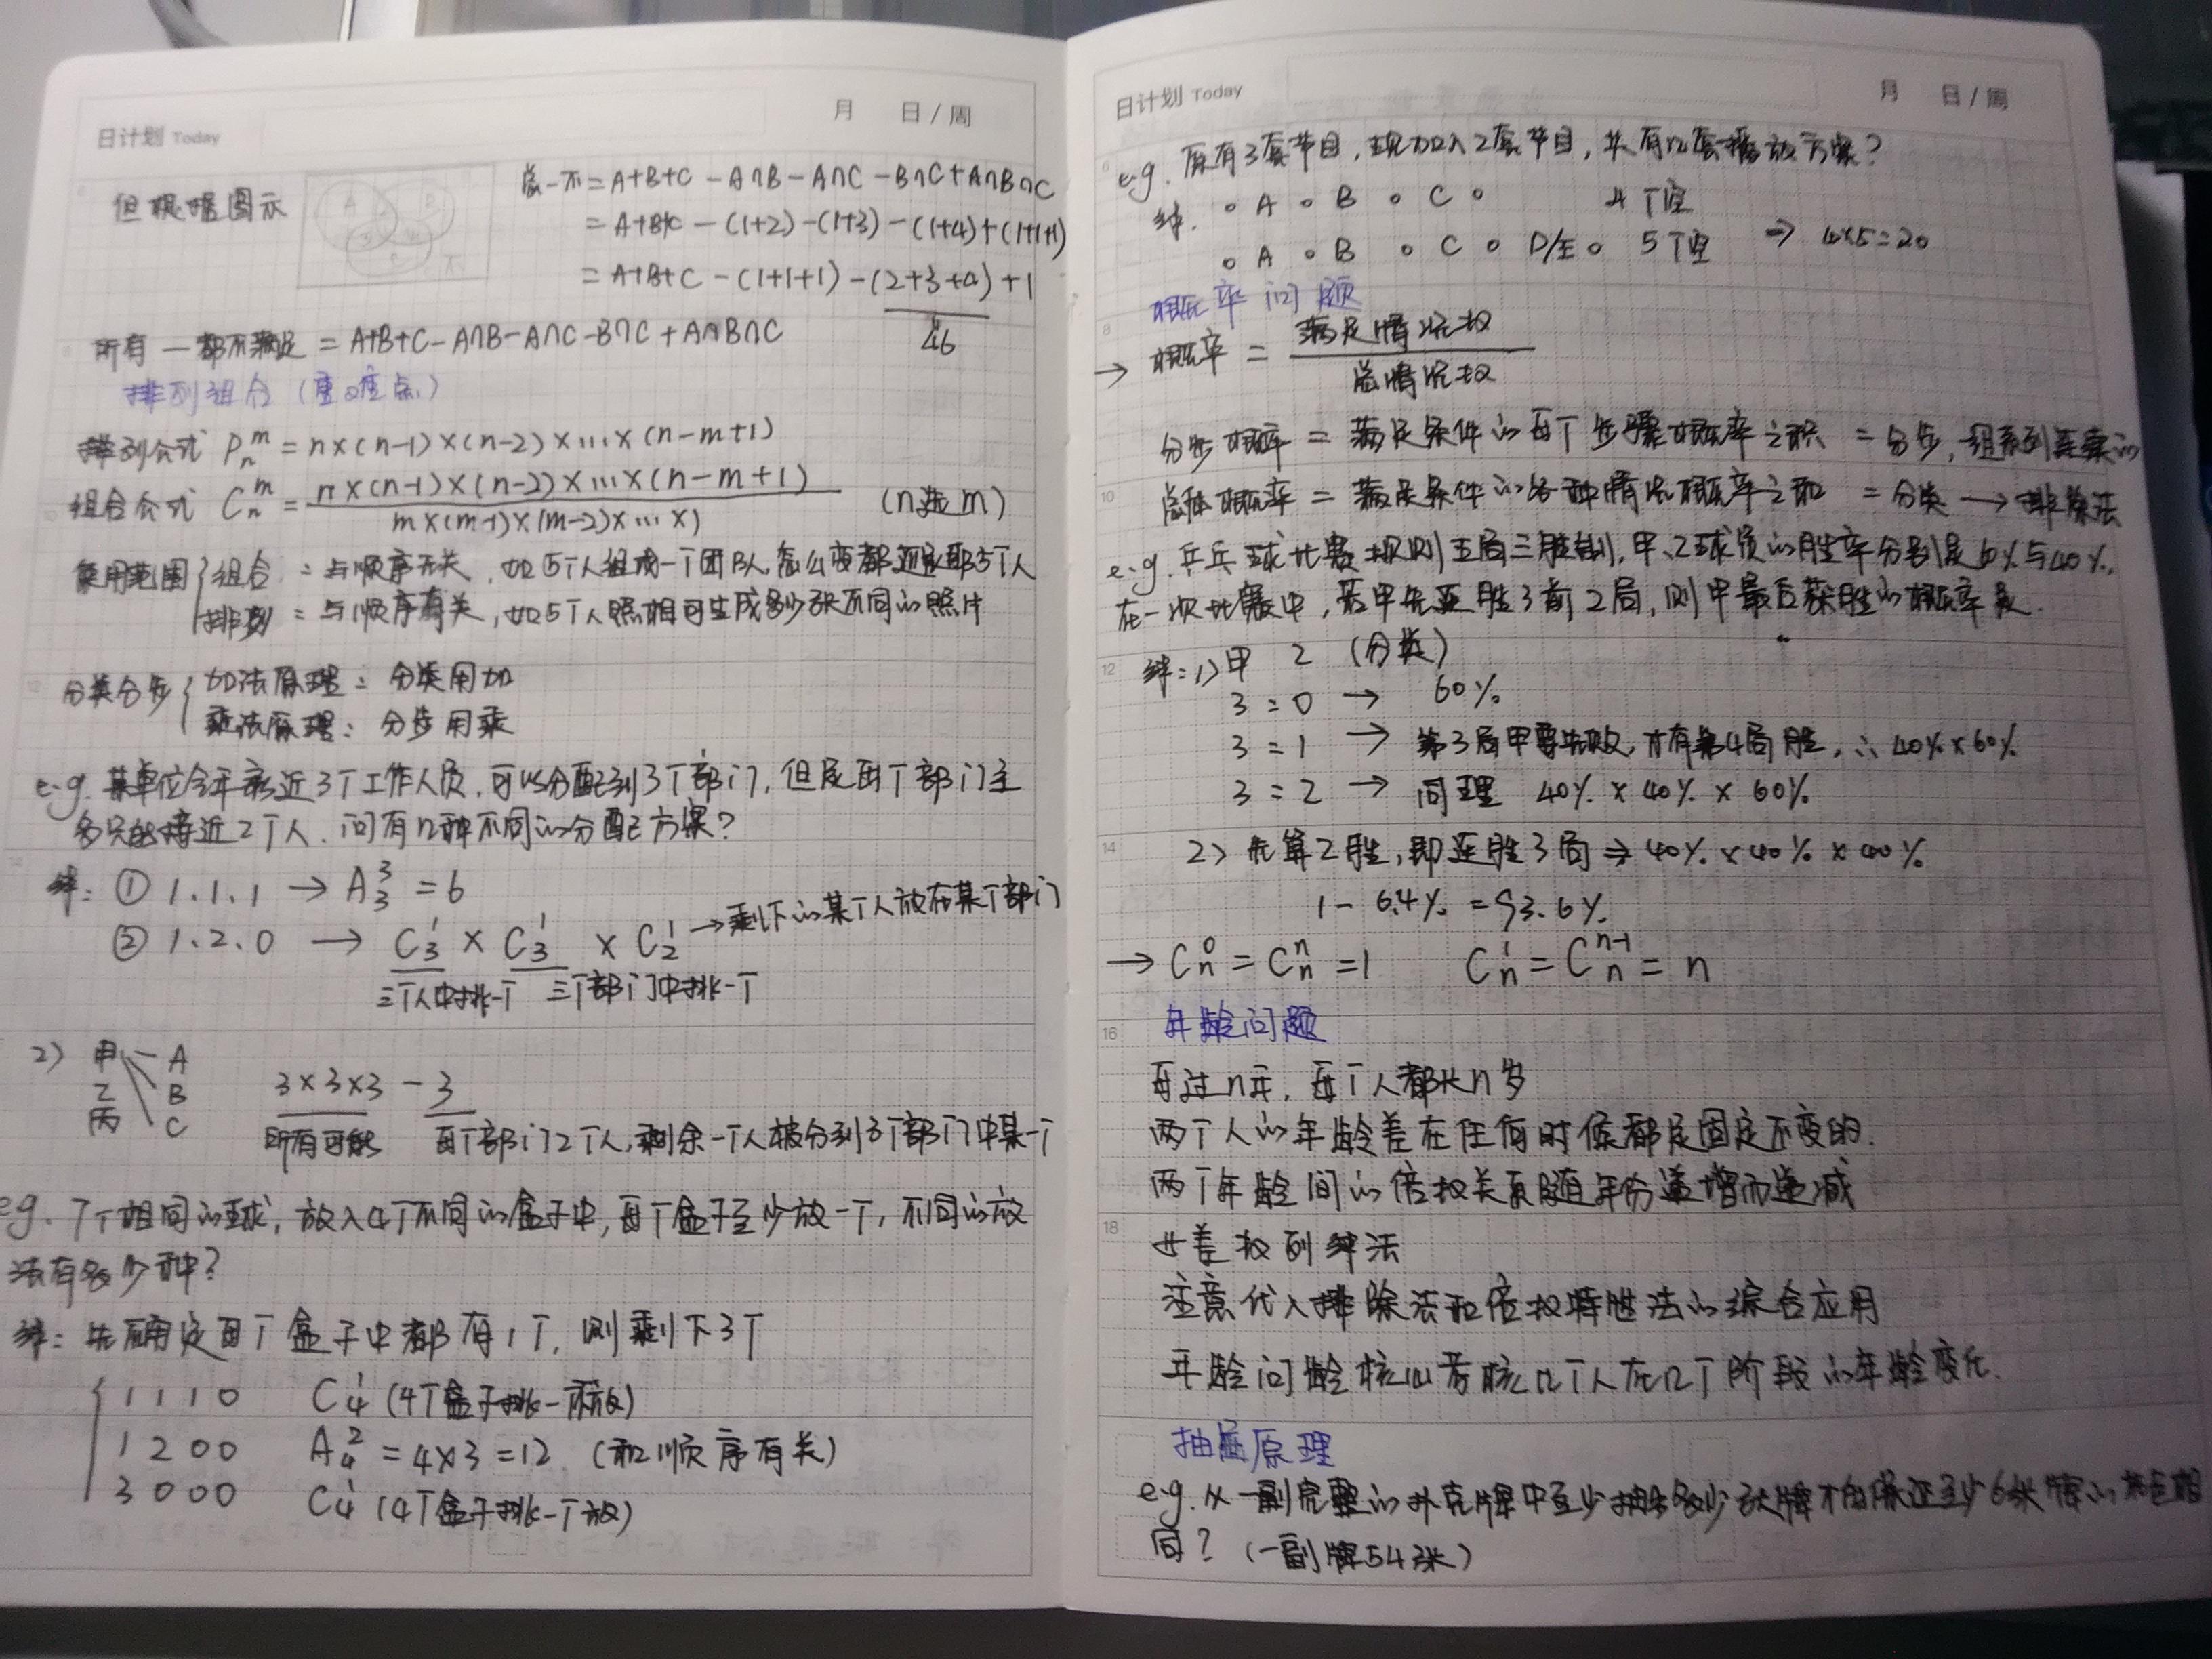 日计划 Today
月 日/周
但根据图示
A B C 不
总-不=A+B+C-A∩B-A∩C-B∩C+A∩B∩C
=A+B+C-(1+2)-(1+3)-(1+4)+(1+1+1)
=A+B+C-(1+1+1)-(2+3+4)+1
46
所有一都不满足=A+B+C-A∩B-A∩C-B∩C+A∩B∩C
排列组合(重点难点)
排列公式 Pₙᵐ=n×(n-1)×(n-2)×…×(n-m+1)
组合公式 Cₙᵐ=n×(n-1)×(n-2)×…×(n-m+1)/m×(m-1)×(m-2)×…×1 (n选m)
使用范围{组合:与顺序无关,如5个人组成一个团队,怎么变都还是那5个人
排列:与顺序有关,如5个人照相可生成多少张不同的照片
分类分步{加法原理:分类用加
乘法原理:分步用乘
e.g.某单位今年新近3个工作人员,可以分配到3个部门,但是每个部门至
多只能接近2个人.问有几种不同的分配方案?
解:①1.1.1→A₃³=6
②1.2.0→C₃¹×C₃¹×C₂¹→剩下的某个人放在某个部门
三个人中挑一个 三个部门中挑一个
2)甲 乙 丙 A B C
3×3×3-3
所有可能 每个部门2个人,剩余一个人被分到3个部门中某一个
eg.7个相同的球,放入4个不同的盒子中,每个盒子至少放一个,不同的放
法有多少种?
解:先确定每个盒子中都有1个,则剩下3个
{1 1 1 0 C₄¹(4个盒子挑一不放)
1 2 0 0 A₄²=4×3=12(和顺序有关)
3 0 0 0 C₄¹(4个盒子挑一个放)
日计划 Today
月 日/周
e.g.原有3套节目,现加入2套节目,共有几套播放方案?
解.∘A∘B∘C∘ 4个空
∘A∘B∘C∘D/E∘ 5个空 ⇒4×5=20
概率问题
→概率=满足情况数/总情况数
分步概率=满足条件的每个步骤概率之积=分步,一组系列连续的
总体概率=满足条件的各种情况概率之和=分类→排除法
e.g.乒乓球比赛规则五局三胜制,甲、乙球员的胜率分别是60%与40%.
在一次比赛中,若甲先连胜了前2局,则甲最后获胜的概率是.
解:1)甲 乙(分类)
3:0→60%
3:1→第3局甲要先败,才有第4局胜,∴40%×60%
3:2→同理 40%×40%×60%
2)先算乙胜,即连胜3局⇒40%×40%×40%
1-6.4%=93.6%
→Cₙ⁰=Cₙⁿ=1 Cₙ¹=Cₙⁿ⁻¹=n
年龄问题
每过n年,每个人都长n岁
两个人的年龄差在任何时候都是固定不变的.
两个年龄间的倍数关系随年份递增而递减
数列解法
注意代入排除法和倍数特性法的综合应用
年龄问龄核心考核几个人在几个阶段的年龄变化.
抽屉原理
e.g.从一副完整的扑克牌中至少抽出多少张牌才能保证至少6张牌的花色相
同?(一副牌54张)